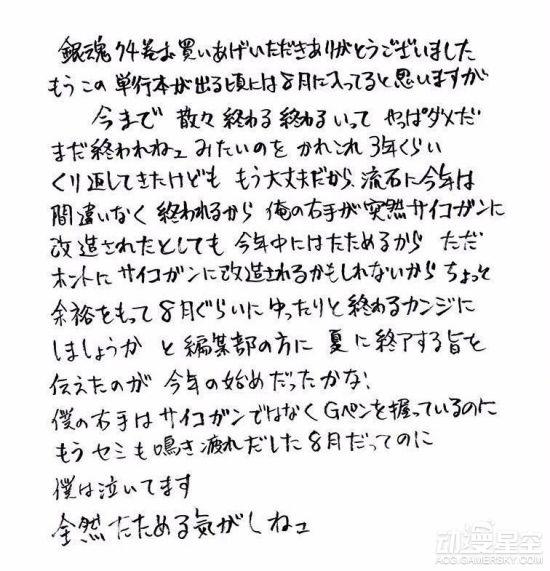 銀魂74巻お買いあげいただきありがとうございました
もうこの単行本が出る頃には8月に入ってると思いますが
今まで 散々終わる終わるいって やっぱダメだ
まだ終われねェ みたいのを かれこれ 3年くらい
くり返してきたけども もう大丈夫だから、流石に今年は
間違いなく 終われるから 俺の右手が突然サイコガンに
改造されたとしても 今年中にはたためるから ただ
ホントにサイコガンに改造されるかもしれないから ちょっと
余裕をもって 8月ぐらいに ゆったりと終わるカンジに
しましょうか と 編集部の方に 夏に終了する旨を
伝えたのが 今年の始めだったかな、
僕の右手はサイコガンではなく Gペンを握っているのに
もう セミも鳴き疲れだした 8月だってのに
僕は泣いてます
全然 たためる気がしねェ
动漫星空
ACG.GAMERSKY.COM